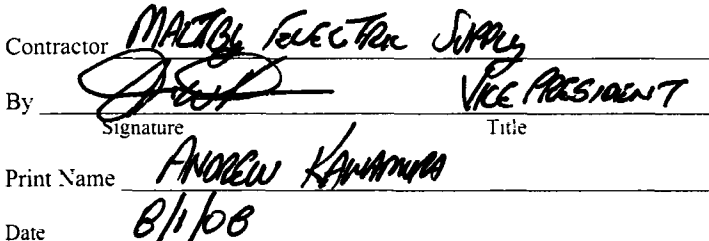 Contractor MALTBY ELECTRIC SUPPLY
By VICE PRESIDENT
Signature Title
Print Name ANDREW KAWAMURA
Date 8/1/08